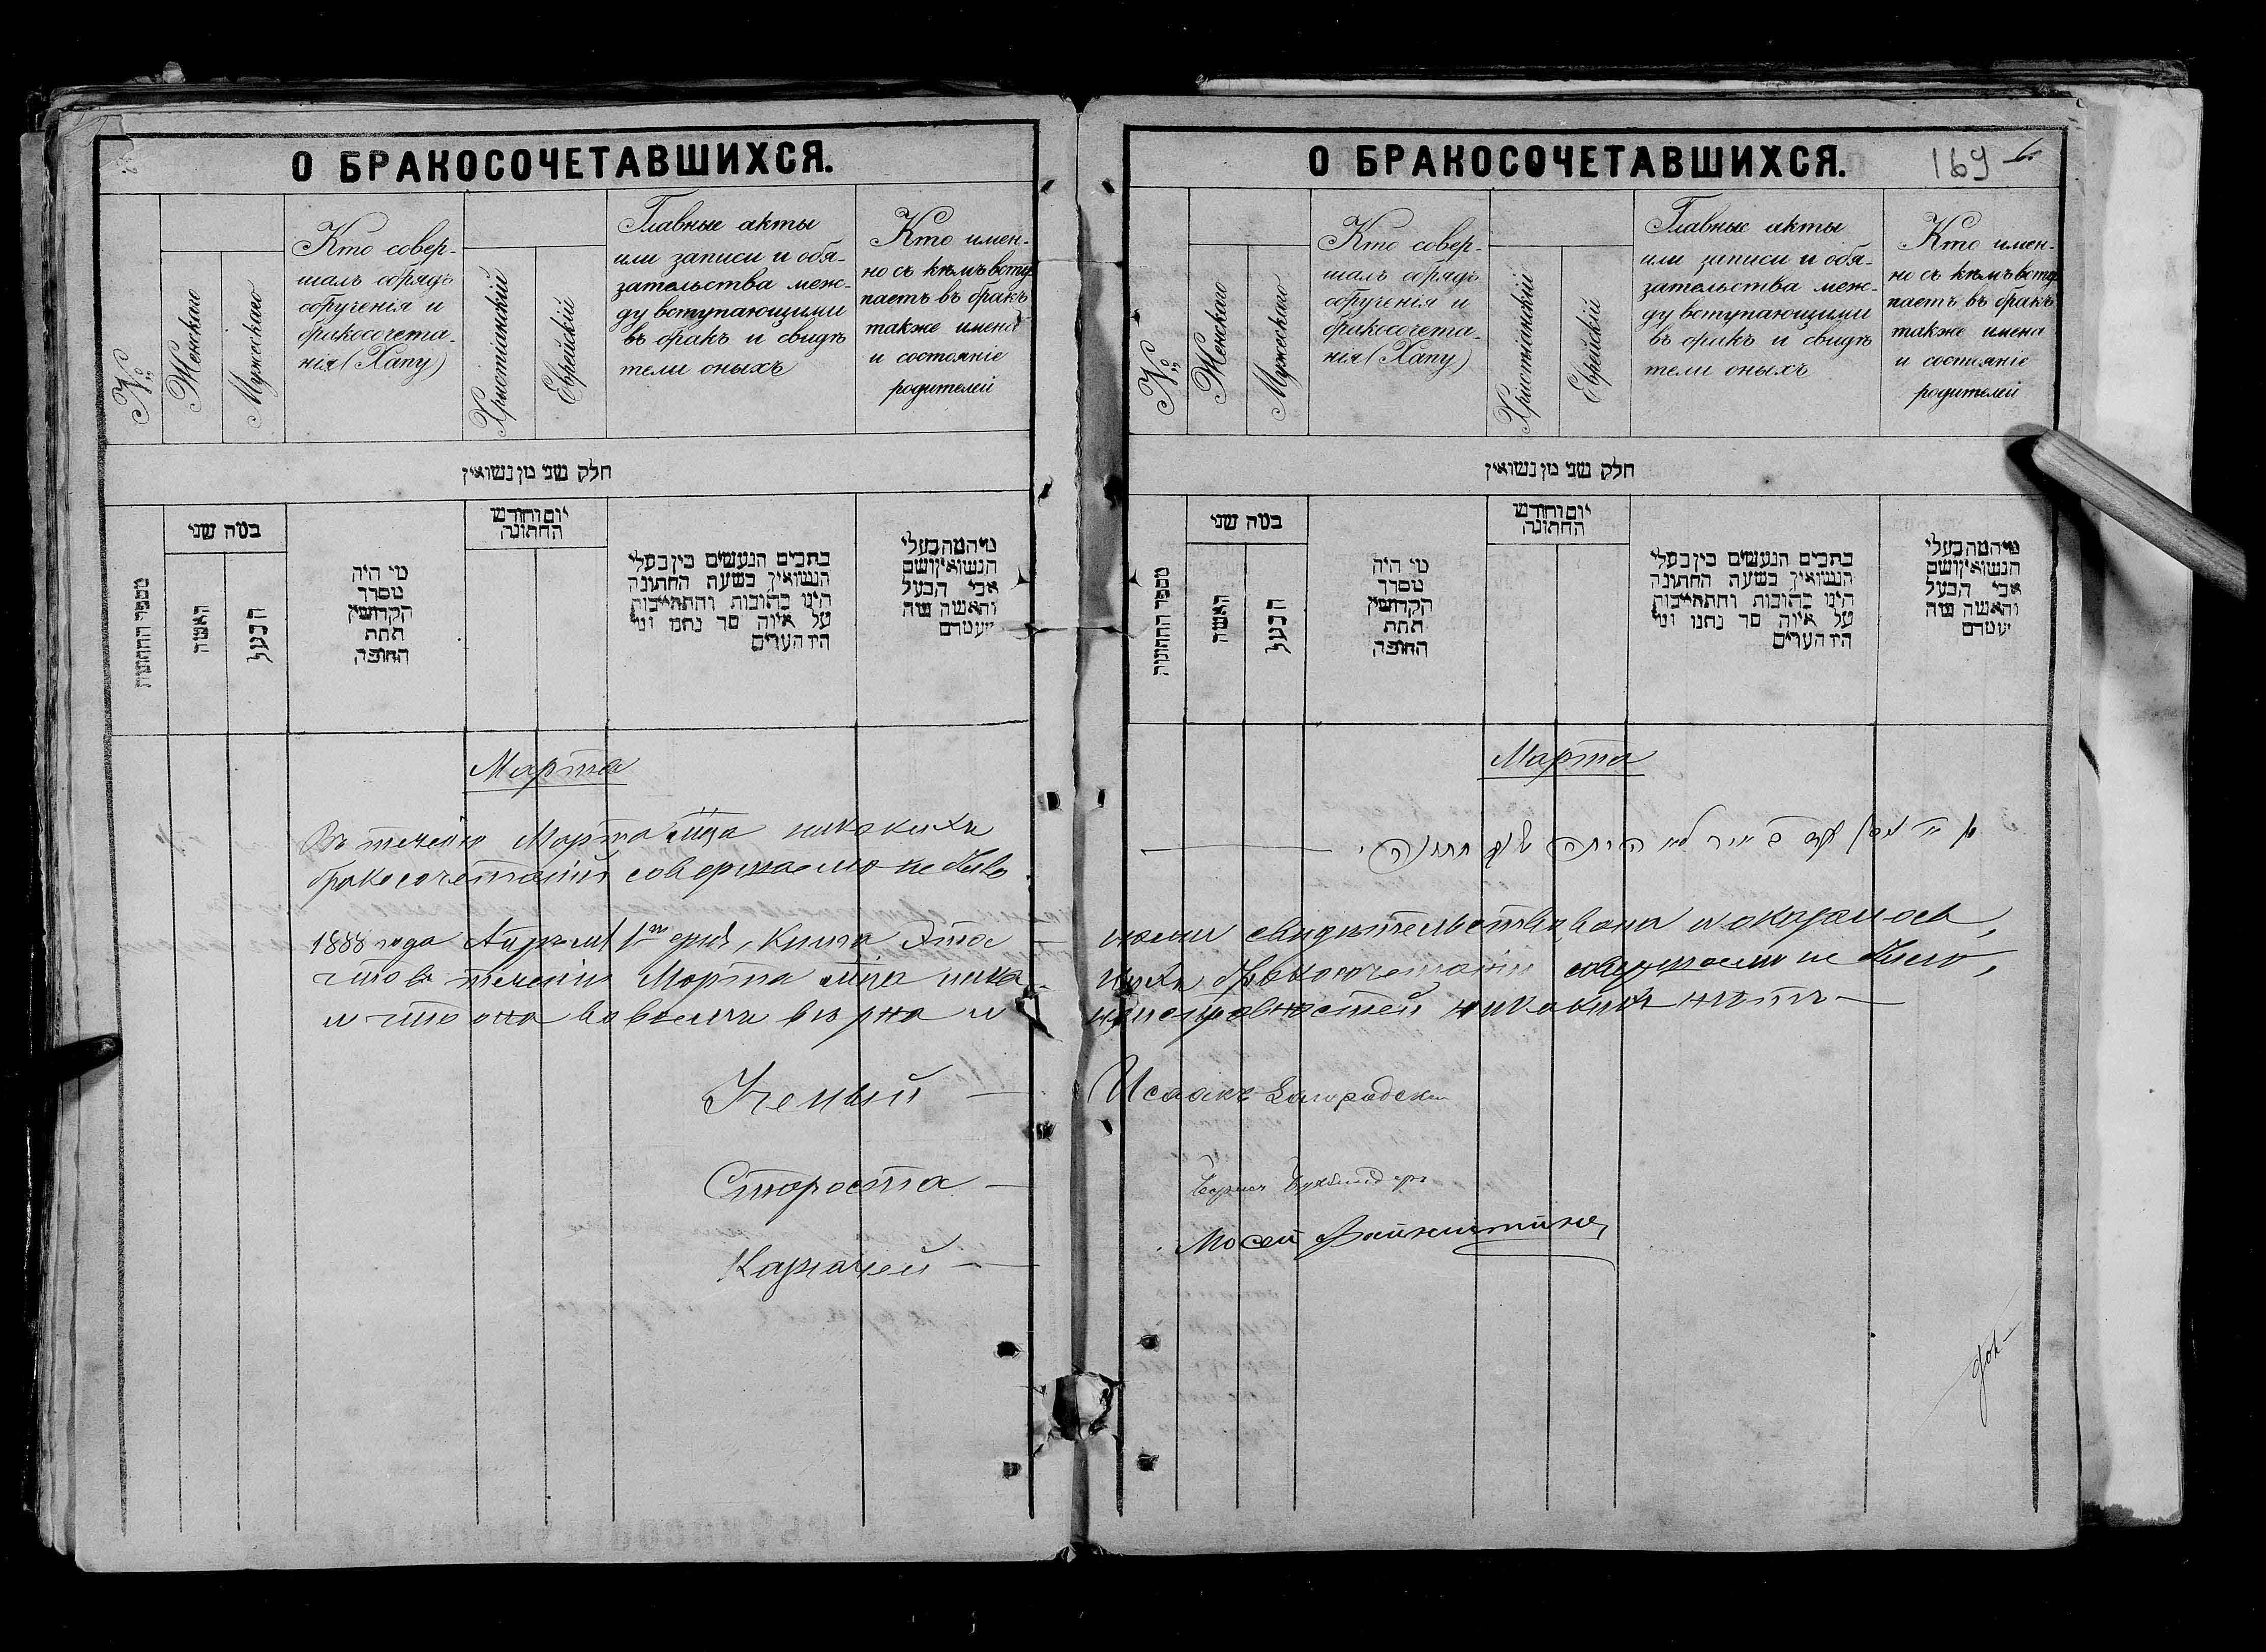 О БРАКОСОЧЕТАВШИХСЯ.
№
Женскаго
Мужескаго
Кто совер-
шалъ обрядъ
обрученія и
бракосочета-
нія (Хапу)
Христіанскій
Еврейскій
Главные акты
или записи и обя-
зательства меж-
ду вступающими
въ бракъ и свидѣ
тели оныхъ
Кто имен-
но съ кѣмъ всту
паетъ въ бракъ
также имена
и состояніе
родителей
חלק שני מן נשואין
מספר החתונות
כמה שני
האשה
הבעל
מי היה
מסדר
הקדושין
תחת
החופה
יום וחודש
החתונה
כתבים הנעשים בין בעלי
הנשואין בשעת החתונה
היינו כתובות והתחייבות
על איזה סך נתנו ומי
היו העדים
מי המה בעלי
הנשואין ושם
אבי הבעל
והאשה ומה
מעמדם
Марта
Въ теченіи Марта мца никакихъ
бракосочетаній совершаемо не было
1888 года Апреля 1го дня, книга эта
что въ теченіи Марта мца ника-
и что она во всемъ вѣрна и
Ученый —
Староста —
Казначей —
О БРАКОСОЧЕТАВШИХСЯ.
169
№
Женскаго
Мужескаго
Кто совер-
шалъ обрядъ
обрученія и
бракосочета-
нія (Хапу)
Христіанскій
Еврейскій
Главные акты
или записи и обя-
зательства меж-
ду вступающими
въ бракъ и свидѣ
тели оныхъ
Кто имен-
но съ кѣмъ всту
паетъ въ бракъ
также имена
и состояніе
родителей
חלק שני מן נשואין
מספר החתונות
כמה שני
האשה
הבעל
מי היה
מסדר
הקדושין
תחת
החופה
יום וחודש
החתונה
כתבים הנעשים בין בעלי
הנשואין בשעת החתונה
היינו כתובות והתחייבות
על איזה סך נתנו ומי
היו העדים
מי המה בעלי
הנשואין ושם
אבי הבעל
והאשה ומה
מעמדם
Марта
לא היתה שום חתונה
нами свидѣтельствована и оказалось,
кихъ бракосочетаній совершаемо не было,
неисправностей никакихъ нѣтъ —
Исаакъ
Мосей Файнштейнъ